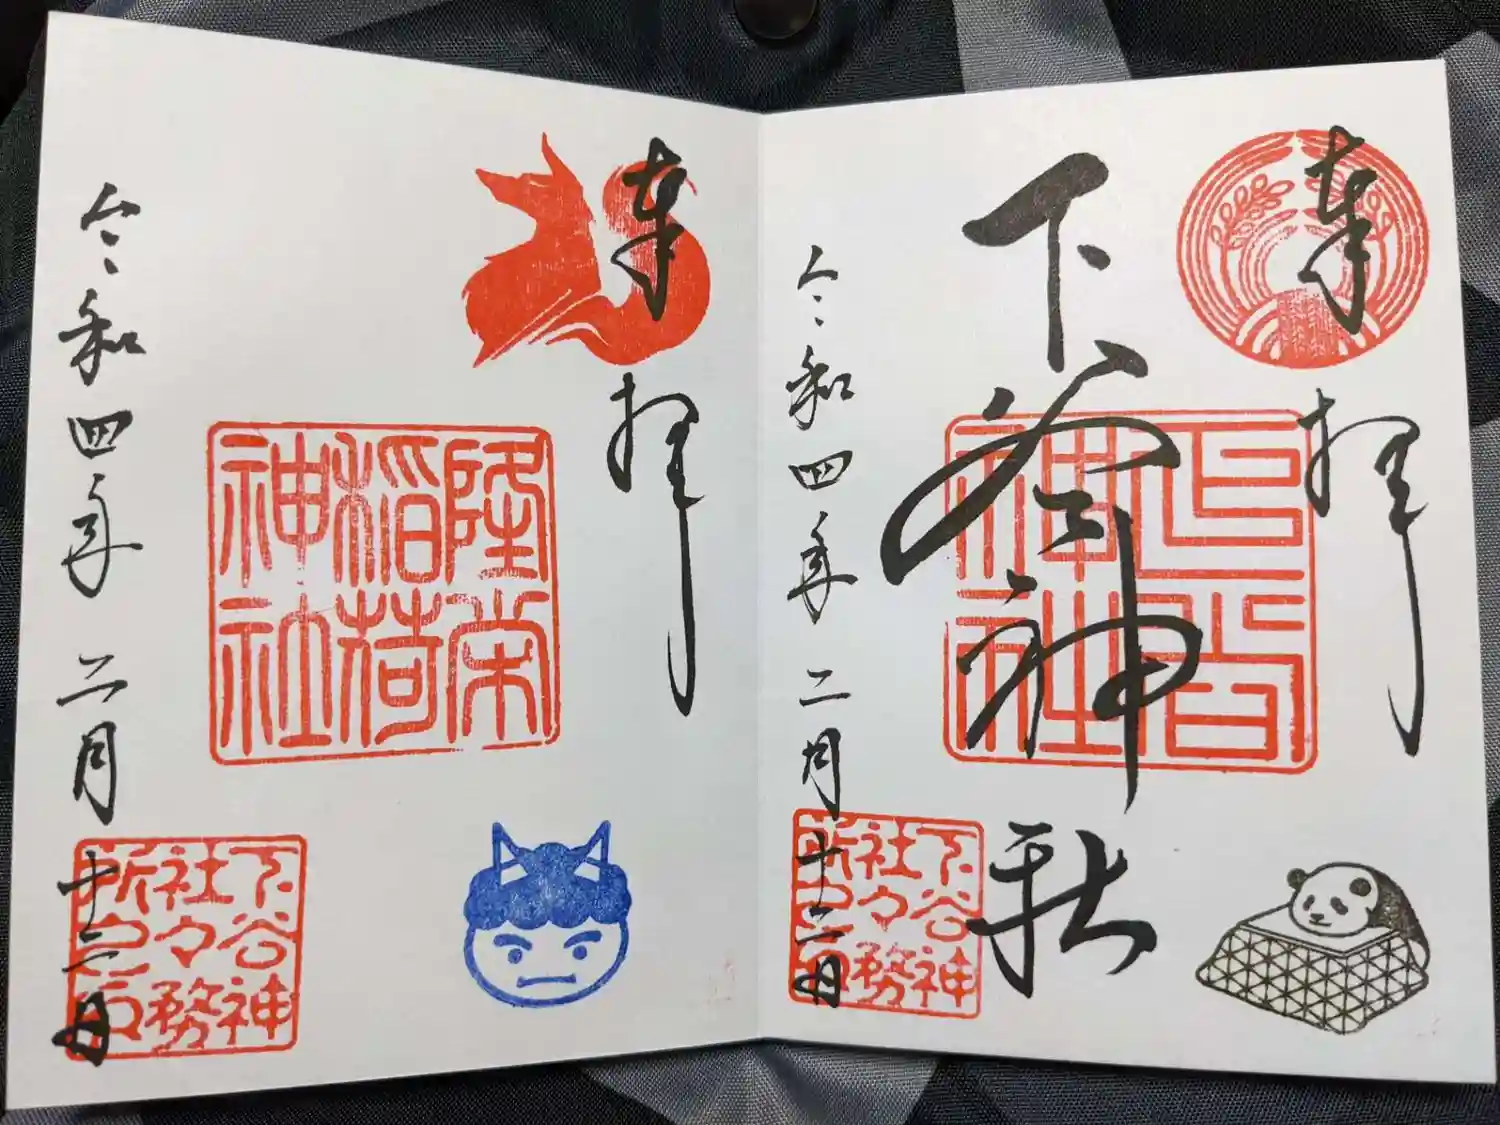 奉拝
下谷神社
下谷神社
令和四年二月十二日
下谷神
社々務
所之印
奉拝
隆栄
稲荷
神社
令和四年二月十二日
下谷神
社々務
所之印